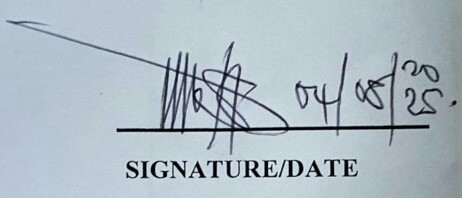 04/08/2025.
SIGNATURE/DATE